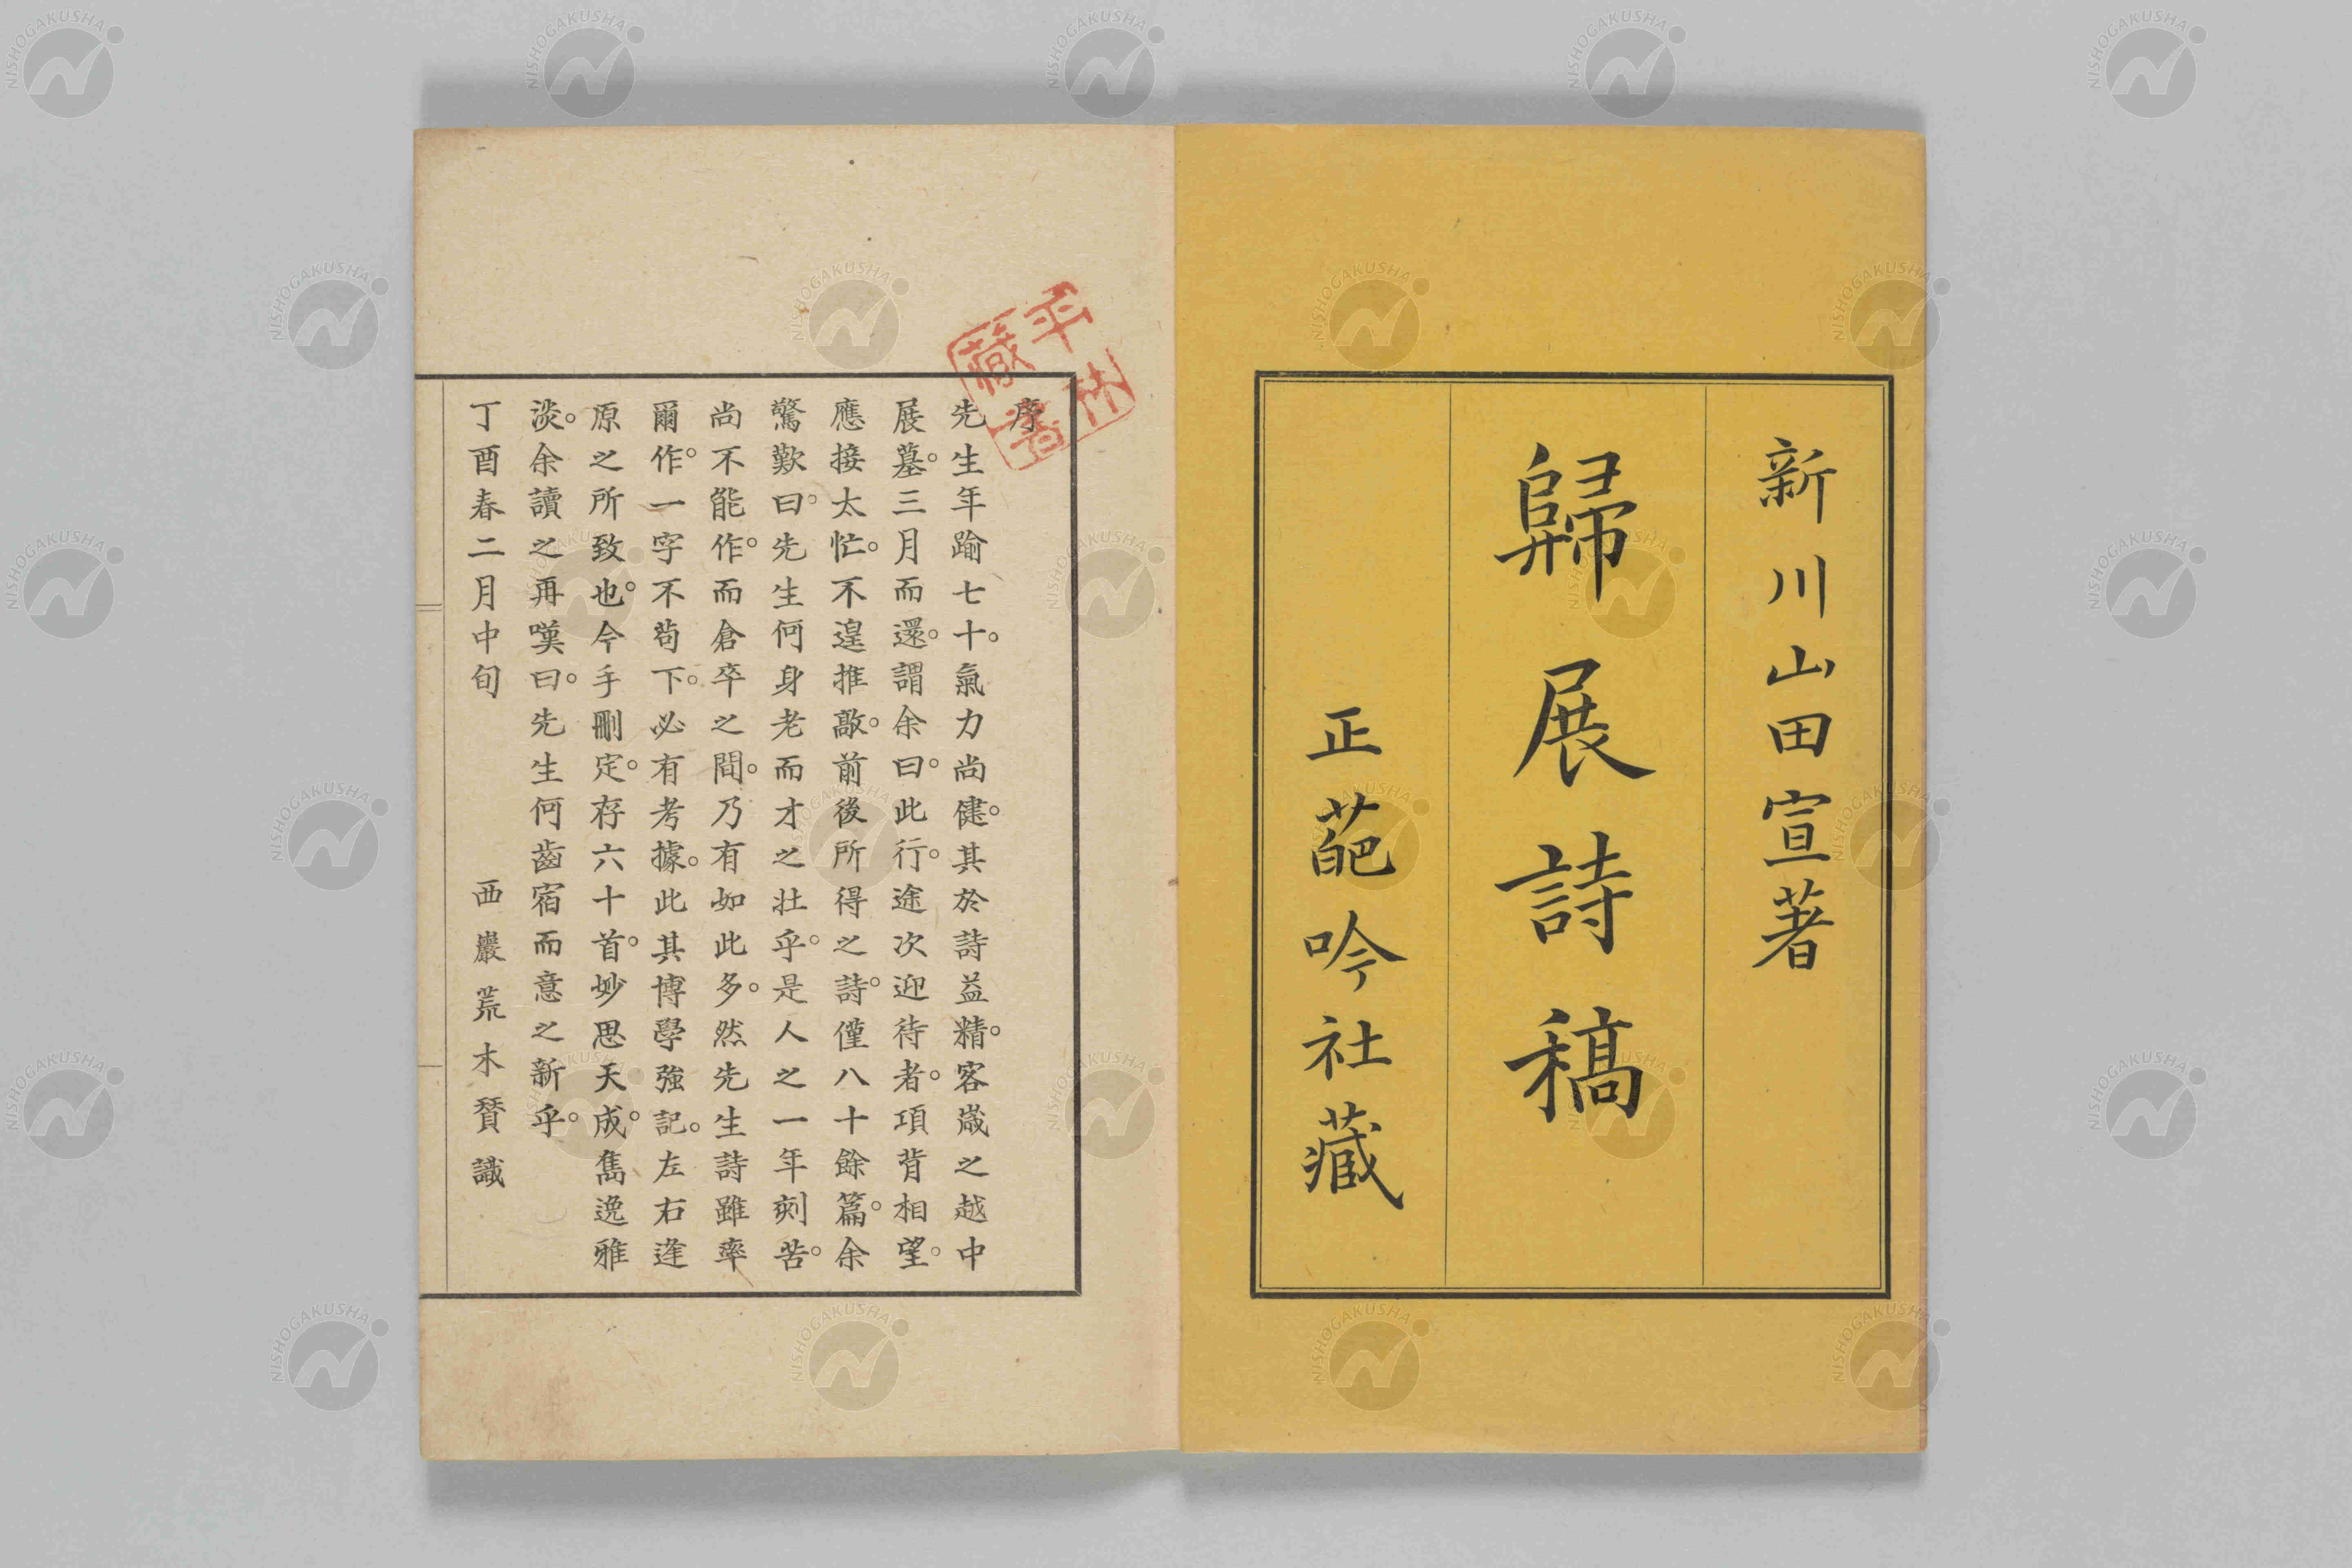 新川山田宣著
歸展詩稿
正葩吟社藏
平林藏書
序
先生年踰七十。氣力尚健。其於詩益精。客歳之越中
展墓。三月而還。謂余曰。此行。途次迎待者。項背相望。
應接太忙。不遑推敲。前後所得之詩。僅八十餘篇。余
驚歎曰。先生何身老而才之壯乎。是人之一年刻苦。
尚不能作。而倉卒之間。乃有如此多。然先生詩雖率
爾作。一字不苟下。必有考據。此其博學強記。左右逢
原之所致也。今手刪定。存六十首。妙思天成。雋逸雅
淡。余讀之再嘆曰。先生何齒宿而意之新乎。
丁酉春二月中旬 西巖荒木賛識
NISHOGAKUSHA